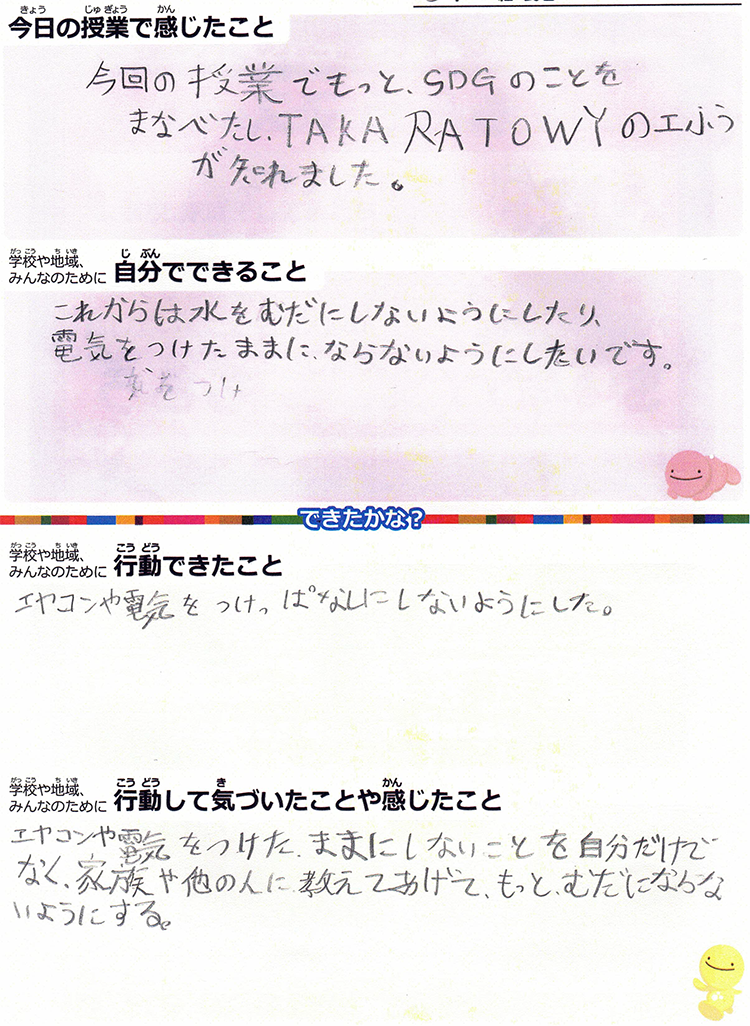 今日の授業で感じたこと
今回の授業でもっと、SDGのことを
まなべたし、TAKARATOWYの工ふう
が知れました。
学校や地域、
みんなのために 自分でできること
これからは水をむだにしないようにしたり、
電気をつけたままに、ならないようにしたいです。
気をつけ
できたかな?
学校や地域、
みんなのために 行動できたこと
エヤコンや電気をつけっぱなしにしないようにした。
学校や地域、
みんなのために 行動して気づいたことや感じたこと
エヤコンや電気をつけた、ままにしないことを自分だけで
なく、家族や他の人に、教えてあげて、もっと、むだにならな
いようにする。